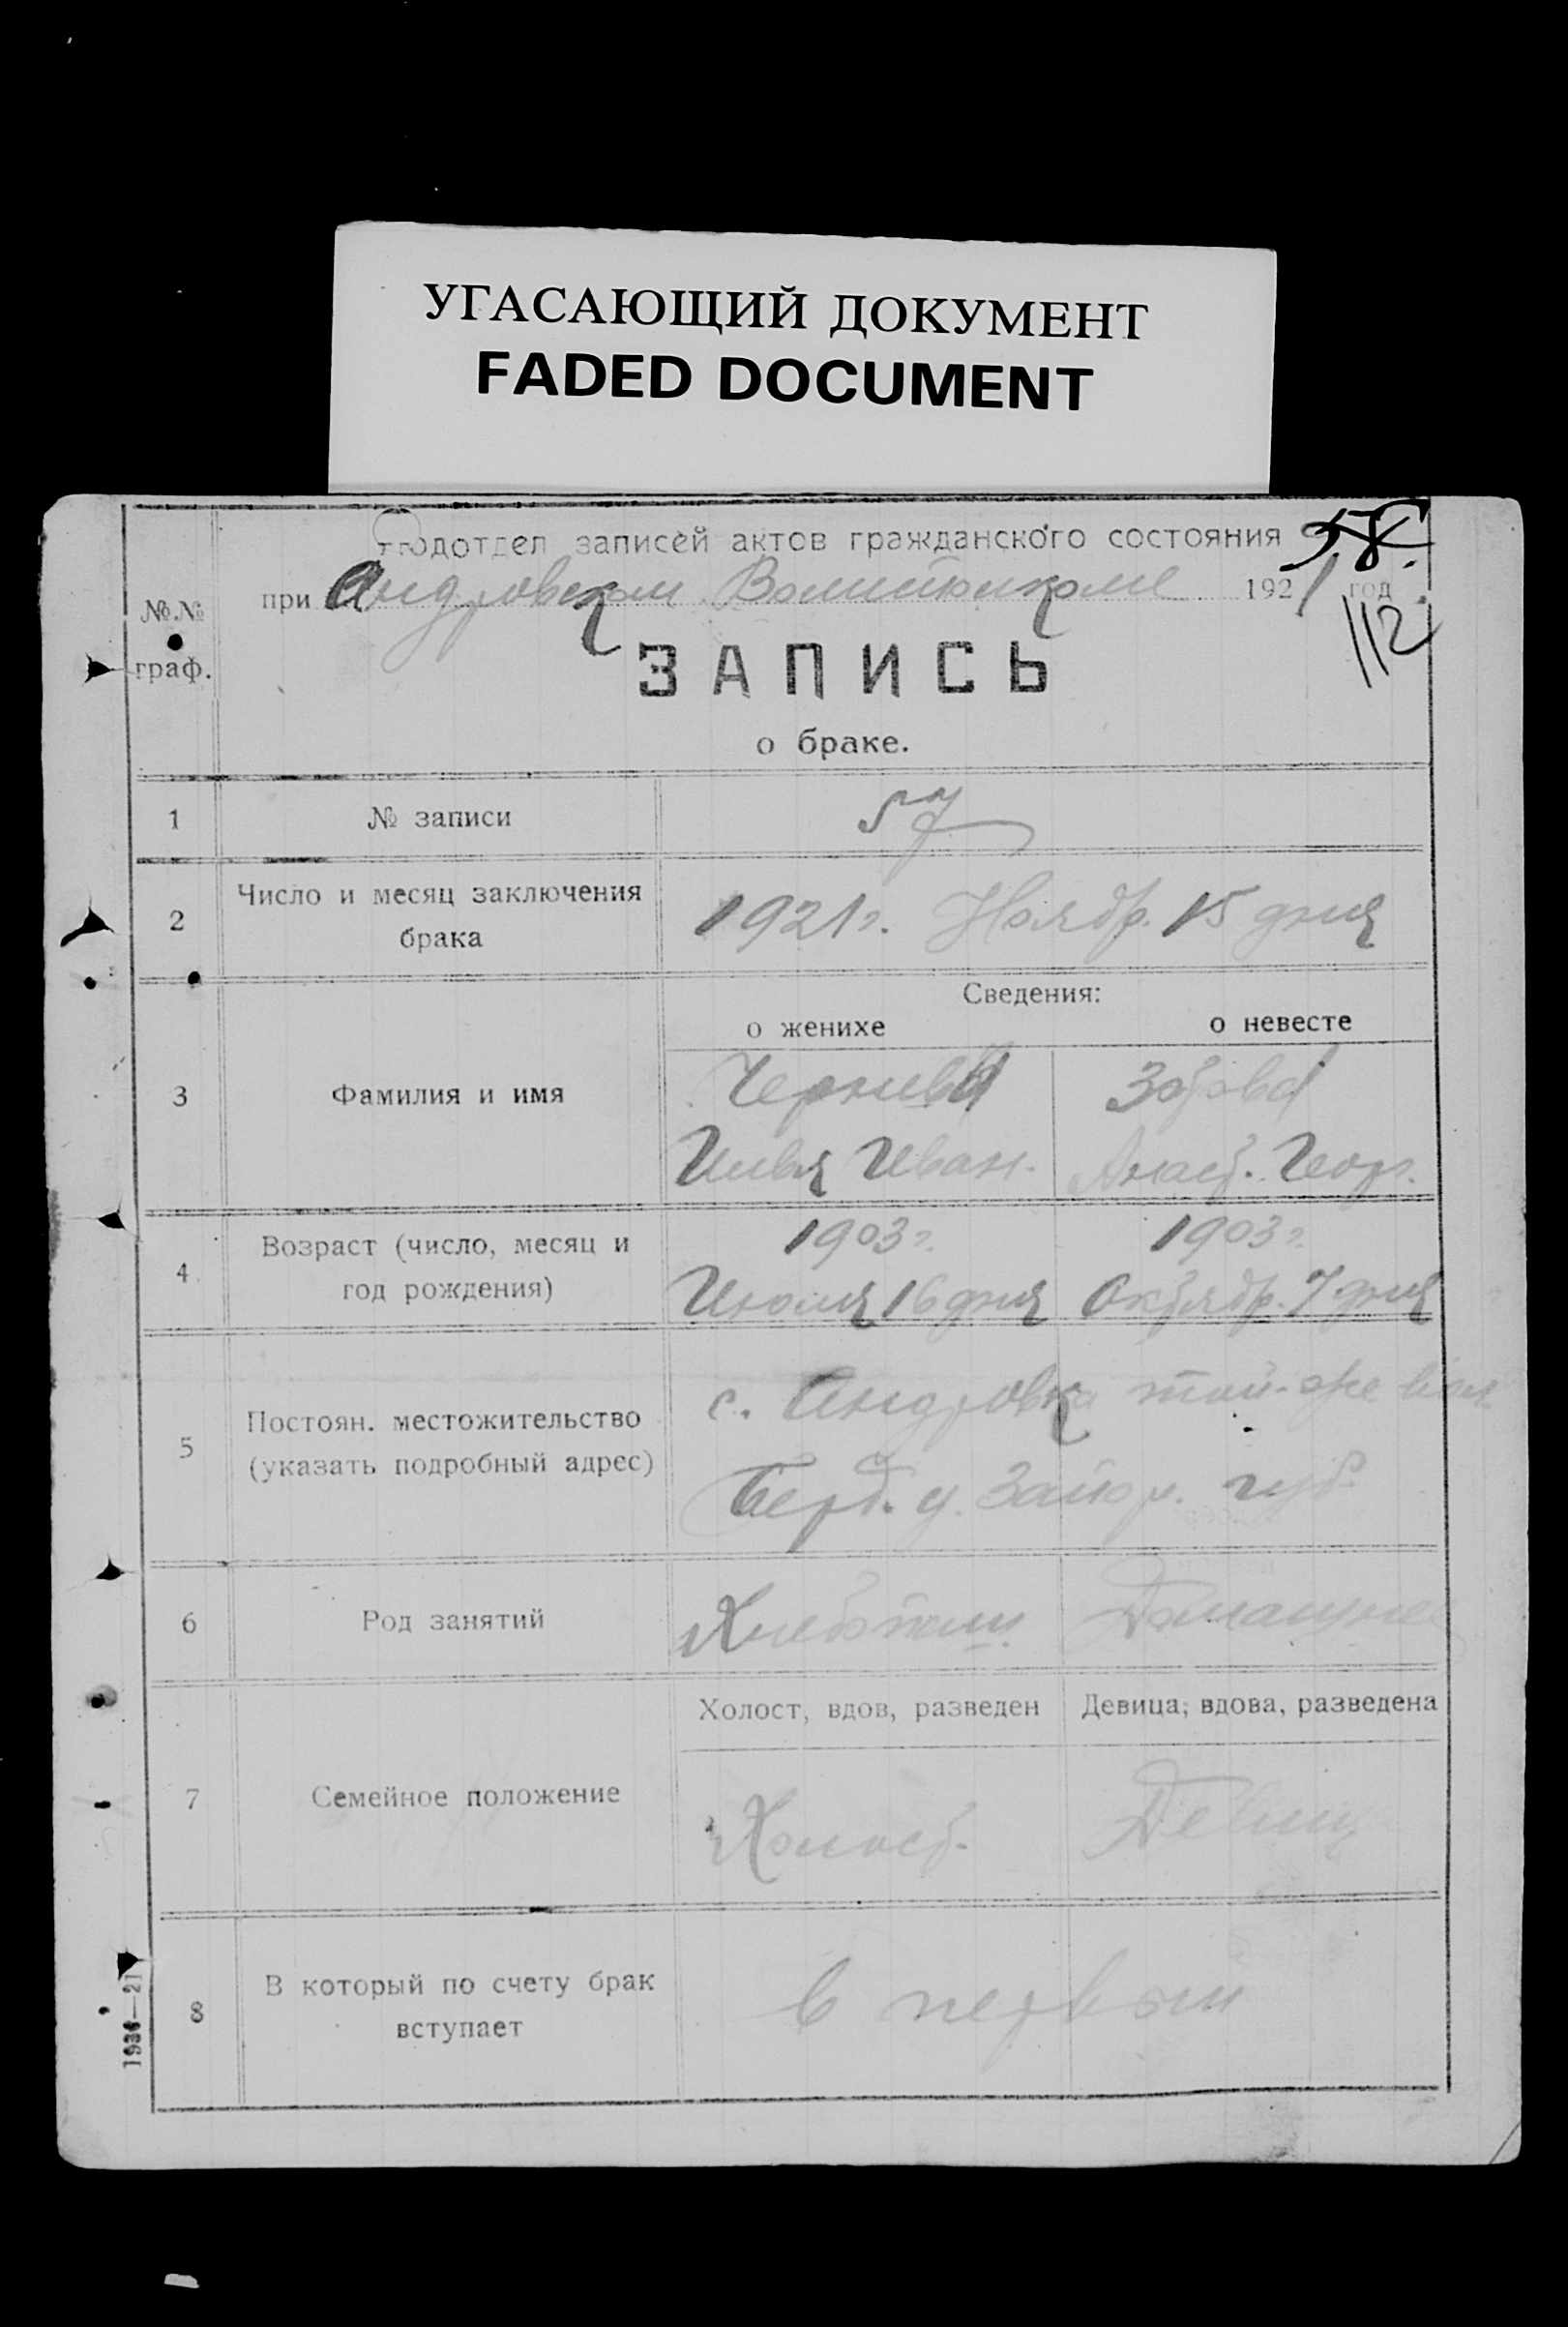 УГАСАЮЩИЙ ДОКУМЕНТ
FADED DOCUMENT
Подотдел записей актов гражданского состояния
при Андровском Волисполкоме 1921 год
112
№№
граф.
ЗАПИСЬ
о браке.
1 № записи 57
2 Число и месяц заключения
брака
1921г. Ноябр. 15 дня
Сведения:
о женихе о невесте
3 Фамилия и имя
Илья Иван. Анаст. Геор.
4 Возраст (число, месяц и
год рождения)
1903г. 1903г.
Июля 16 дня Октябр. 7 дня
5 Постоян. местожительство
(указать подробный адрес)
с. Андровка той-же вол
Берд. у. Запор. губ.
6 Род занятий
Хлебопаш. Домашнее
7 Семейное положение
Холост, вдов, разведен Девица, вдова, разведена
Холост. Девиц
8 В который по счету брак
вступает
в первый